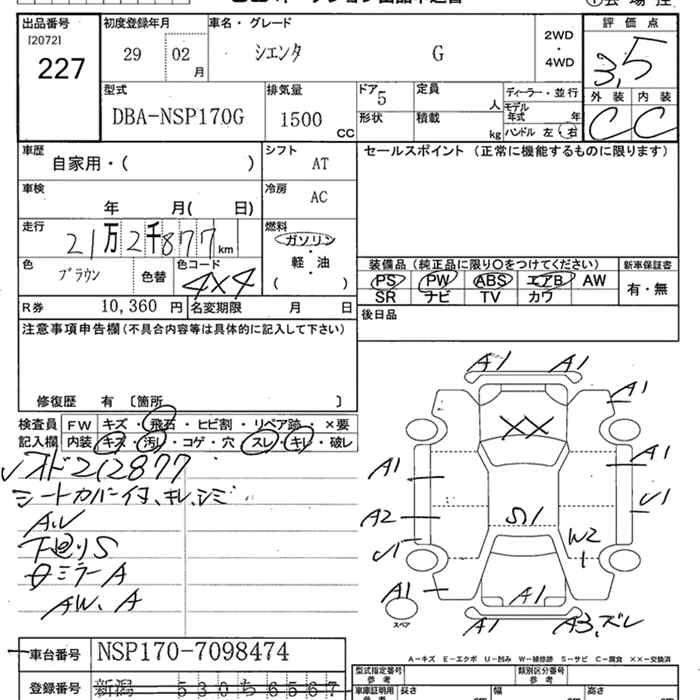 出品番号 初度登録年月 車名・グレード 評価点
[2072]
227 29 02 月 シエンタ G 2WD・4WD 3,5
外装 内装
C C
型式 排気量 ドア 定員 人 ディーラー・並行
DBA-NSP170G 1500 CC 5 モデル年式 年
形状 積載 kg ハンドル 左・右
車歴 シフト セールスポイント (正常に機能するものに限ります)
自家用・( ) AT
車検 冷房
年 月( 日) AC
走行 燃料
21万2千877 km ガソリン
軽・油
( )
色 色コード 装備品 (純正品に限り○をつけてください) 新車保証書
ブラウン 色替 4X4 PS PW ABS エアB AW 有・無
SR ナビ TV カワ
R券 10,360 円 名変期限 月 日 後日品
注意事項申告欄 (不具合内容等は具体的に記入して下さい)
修復歴 有 〔箇所 〕
検査員 FW キズ・飛石・ヒビ割・リペア跡・×要
記入欄 内装 キズ・汚れ・コゲ・穴・スレ・キレ・破レ
オド212877
シートカバー付、キレ、シミ
A.W
下廻りS
ミラーA
AW.A
A1 A1
A1
XX
A1 A1
U1
A2 S1
W2
U1
A1 A1
スペア
A1 A3、ズレ
A-キズ E-エクボ U-凹み W-補修跡 S-サビ C-腐食 XX-交換済
車台番号 NSP170-7098474
型式指定番号 類別区分番号
参考 参考
登録番号 新潟 530 ち 6567
車庫証明用 長さ 幅 高さ